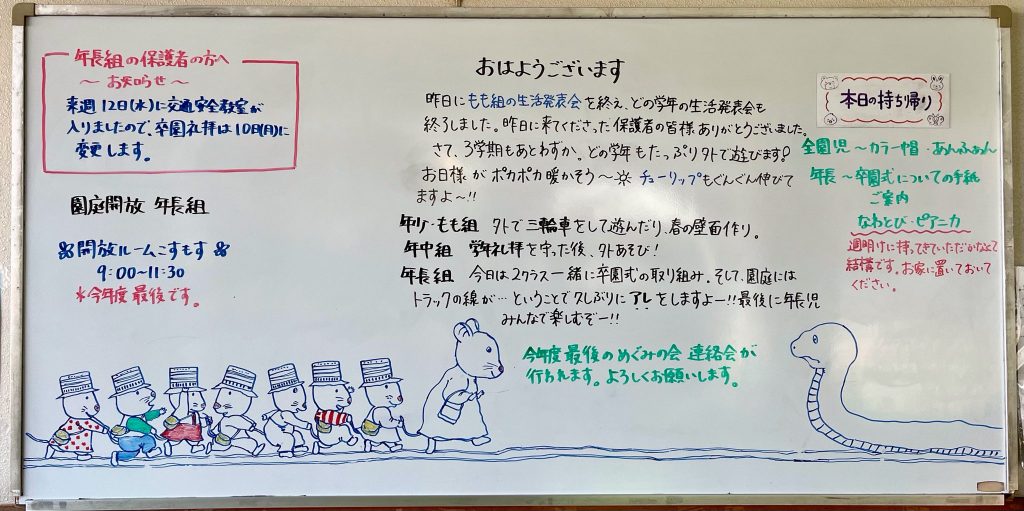 年長組の保護者の方へ
〜お知らせ〜
来週12日(水)に交通安全教室が
入りましたので、卒園礼拝は10日(月)に
変更します。
園庭開放 年長組
開放ルームこすもす
9:00〜11:30
*今年度最後です。
おはようございます
昨日にもも組の生活発表会を終え、どの学年の生活発表会も
終了しました。昨日に来てくださった保護者の皆様ありがとうございました。
さて、3学期もあとわずか。どの学年もたっぷり外で遊びます!
お日様がポカポカ暖かそう〜☼ チューリップもぐんぐん伸びて
ますよ〜!!
年少・もも組 外で三輪車をして遊んだり、春の壁面作り。
年中組 学年礼拝を守った後、外あそび!
年長組 今日は2クラス一緒に卒園式の取り組み。そして、園庭には
トラックの線が…ということで久しぶりにアレをしますよー!!最後に年長児
みんなで楽しむぞー!!
今年度最後のめぐみの会 連絡会が
行われます。よろしくお願いします。
本日の持ち帰り
全園児〜カラー帽・あんふぁん
年長〜卒園式についての手紙
ご案内
なわとび・ピアニカ
週明けに持ってきていただかなくて
結構です。お家に置いておいて
ください。